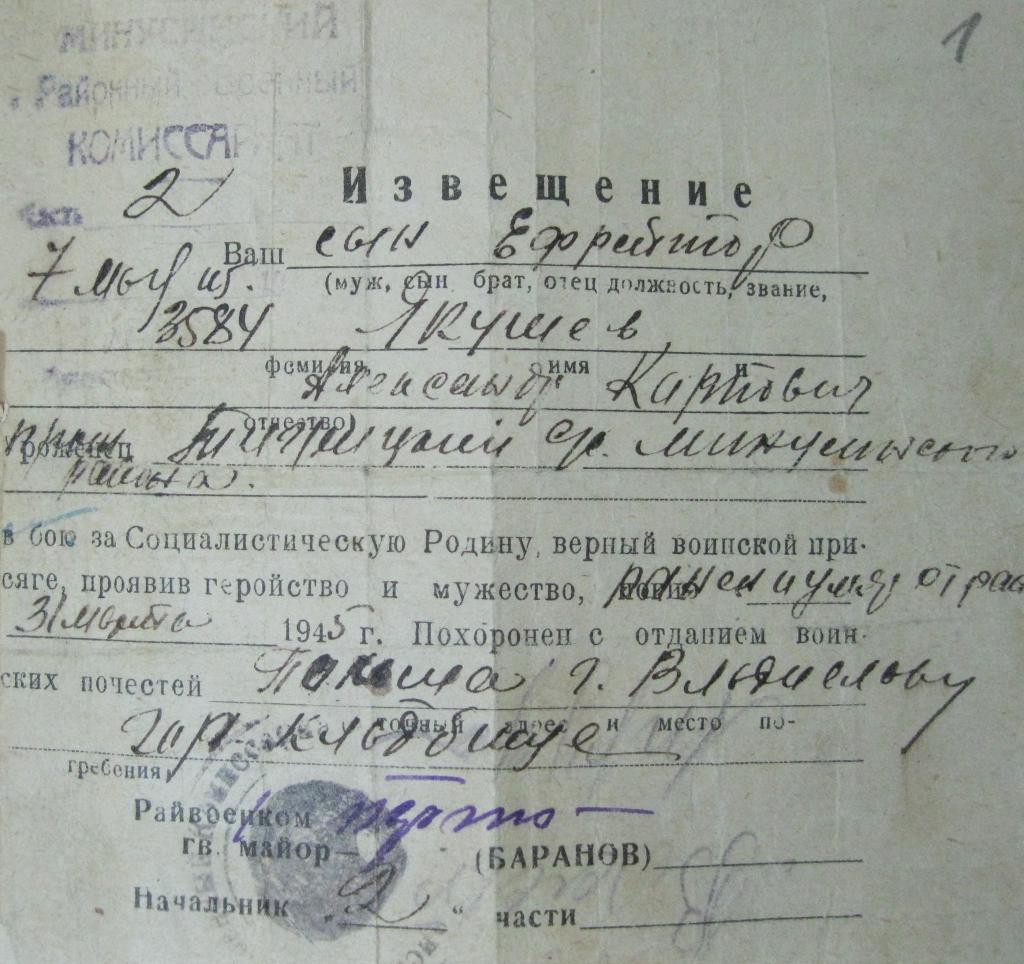 1
МИНУСИНСКИЙ
Районный Военный
КОМИССАРИАТ
Часть 2
Извещение
Ваш сын Ефрейтор
7 мая
(муж, сын, брат, отец должность, звание,
3584 Якушев
фамилия, имя и
Александр Карпович
отчество)
уроженец Тигрицкий с/с. Минусинского
района.
в бою за Социалистическую Родину, верный воинской при-
сяге, проявив геройство и мужество, погиб ранен и умер от ран
31 марта 1945 г. Похоронен с отданием воин-
ских почестей Польша г.
точный адрес и место по-
гор кладбище
гребения
Райвоенком
гв. майор (БАРАНОВ)
Начальник „2“ части